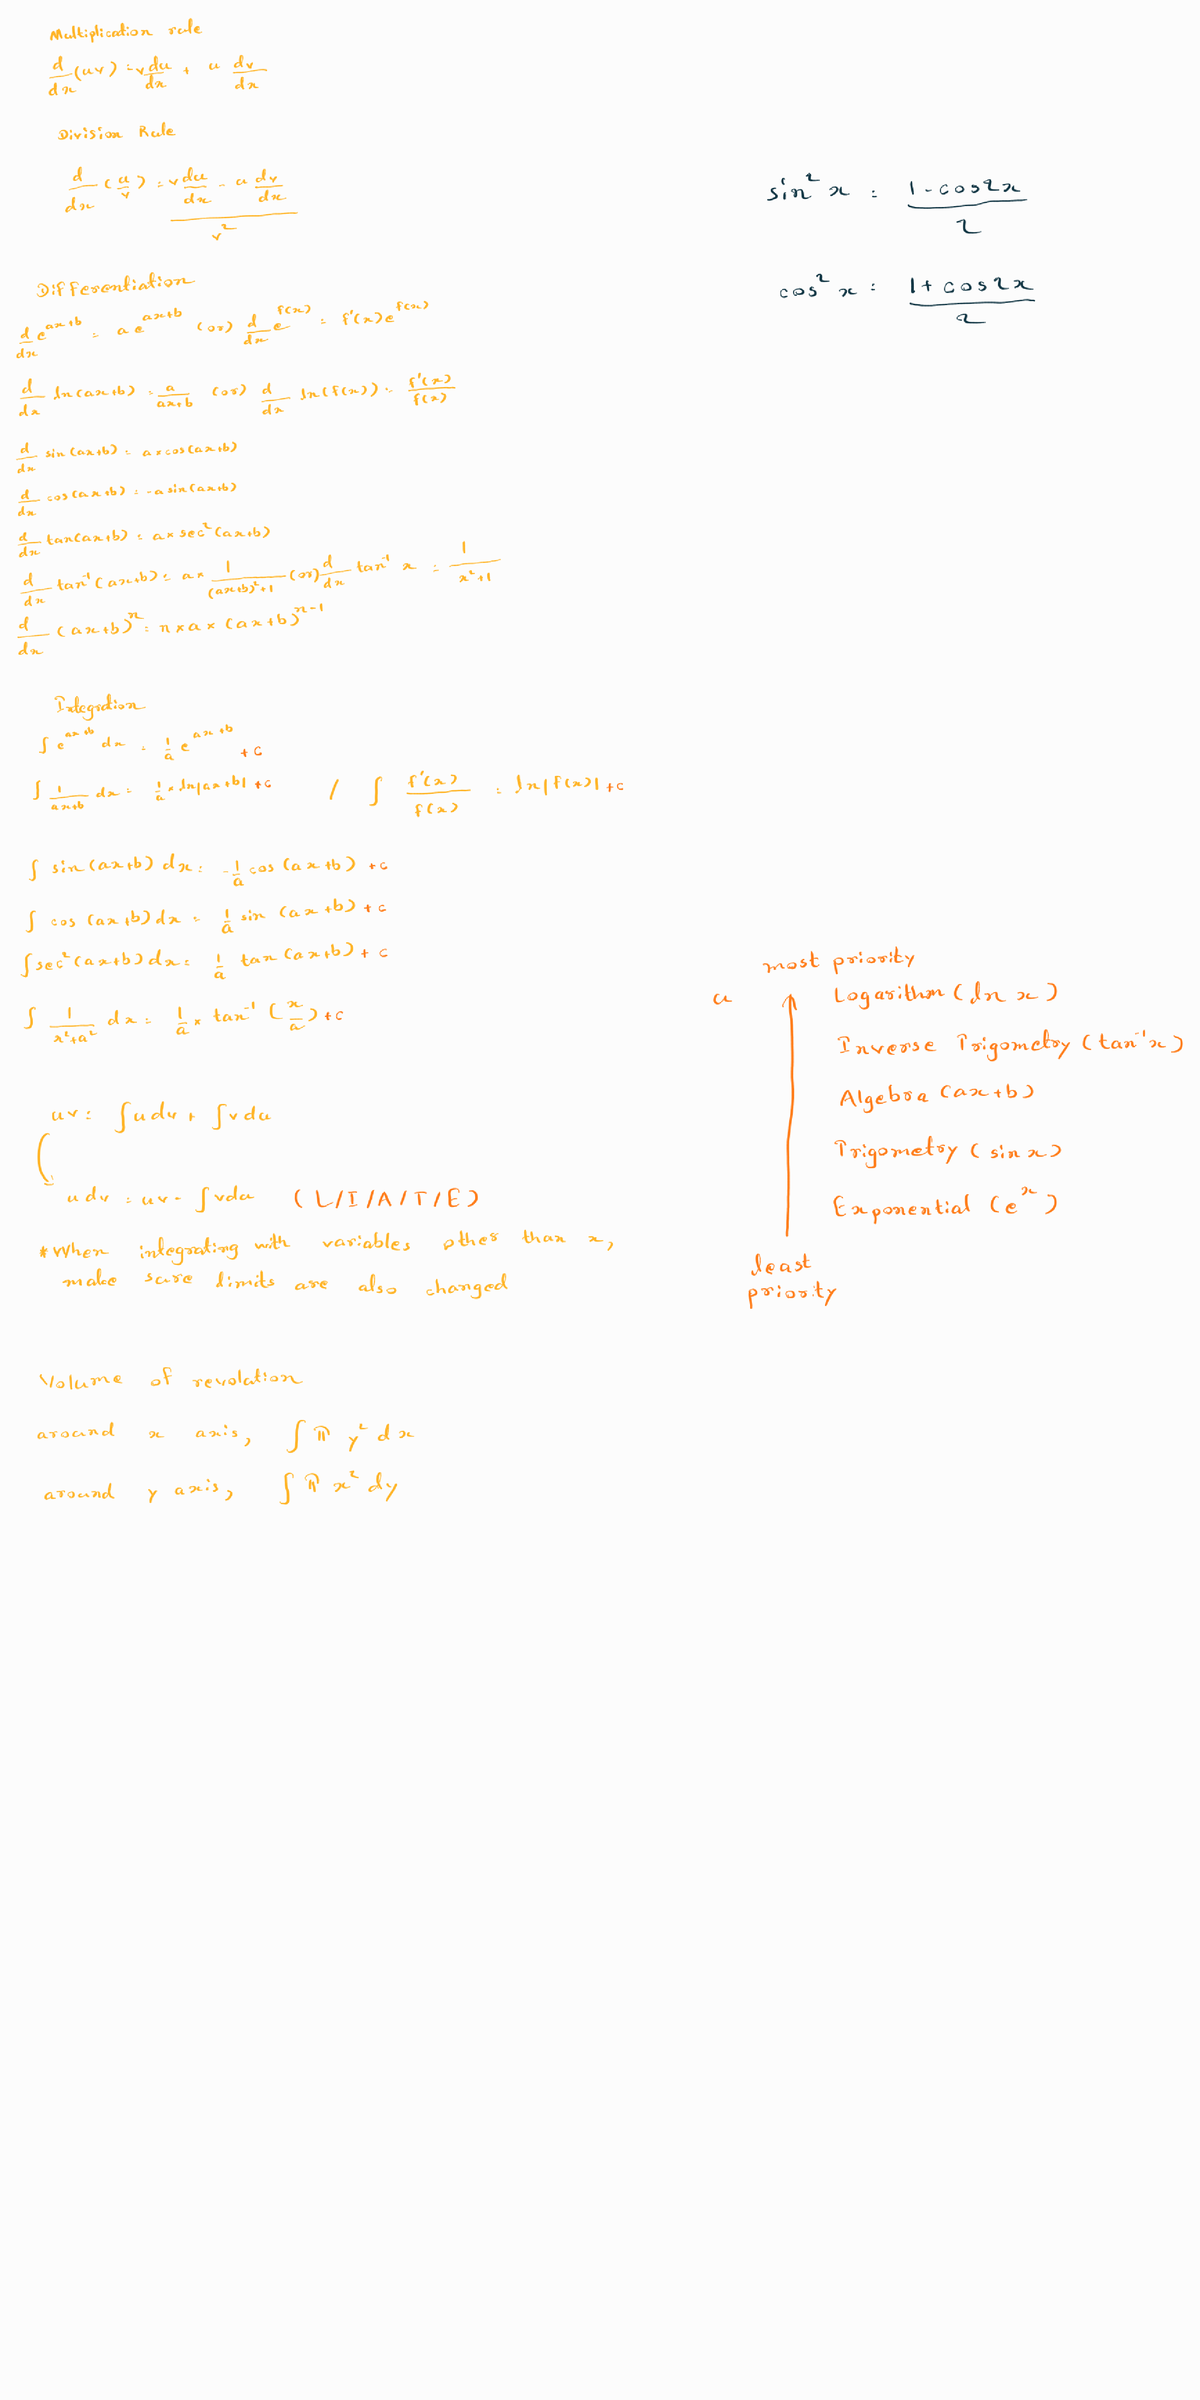 Multiplication rule
d/dx (uv) = v du/dx + u dv/dx
Division Rule
d/dx (u/v) = (v du/dx - u dv/dx) / v²
sin²x = (1 - cos2x) / 2
cos²x = (1 + cos2x) / 2
Differentiation
d/dx e^(ax+b) = a e^(ax+b) (or) d/dx e^(f(x)) = f'(x) e^(f(x))
d/dx ln(ax+b) = a/(ax+b) (or) d/dx ln(f(x)) = f'(x)/f(x)
d/dx sin(ax+b) = a × cos(ax+b)
d/dx cos(ax+b) = -a sin(ax+b)
d/dx tan(ax+b) = a × sec²(ax+b)
d/dx tan⁻¹(ax+b) = a × 1/((ax+b)²+1) (or) d/dx tan⁻¹ x = 1/(x²+1)
d/dx (ax+b)^n = n × a × (ax+b)^(n-1)
Integration
∫ e^(ax+b) dx = 1/a e^(ax+b) + c
∫ 1/(ax+b) dx = 1/a × ln|ax+b| + c / ∫ f'(x)/f(x) = ln|f(x)| + c
∫ sin(ax+b) dx = -1/a cos(ax+b) + c
∫ cos(ax+b) dx = 1/a sin(ax+b) + c
∫ sec²(ax+b) dx = 1/a tan(ax+b) + c
∫ 1/(x²+a²) dx = 1/a × tan⁻¹(x/a) + c
uv = ∫u dv + ∫v du
u dv = uv - ∫v du (L/I/A/T/E)
*When integrating with variables other than x,
make sure limits are also changed
most priority
u
Logarithm (ln x)
Inverse Trigometry (tan⁻¹x)
Algebra (ax+b)
Trigometry (sin x)
Exponential (e^x)
least
priority
Volume of revolution
around x axis, ∫ π y² dx
around y axis, ∫ π x² dy